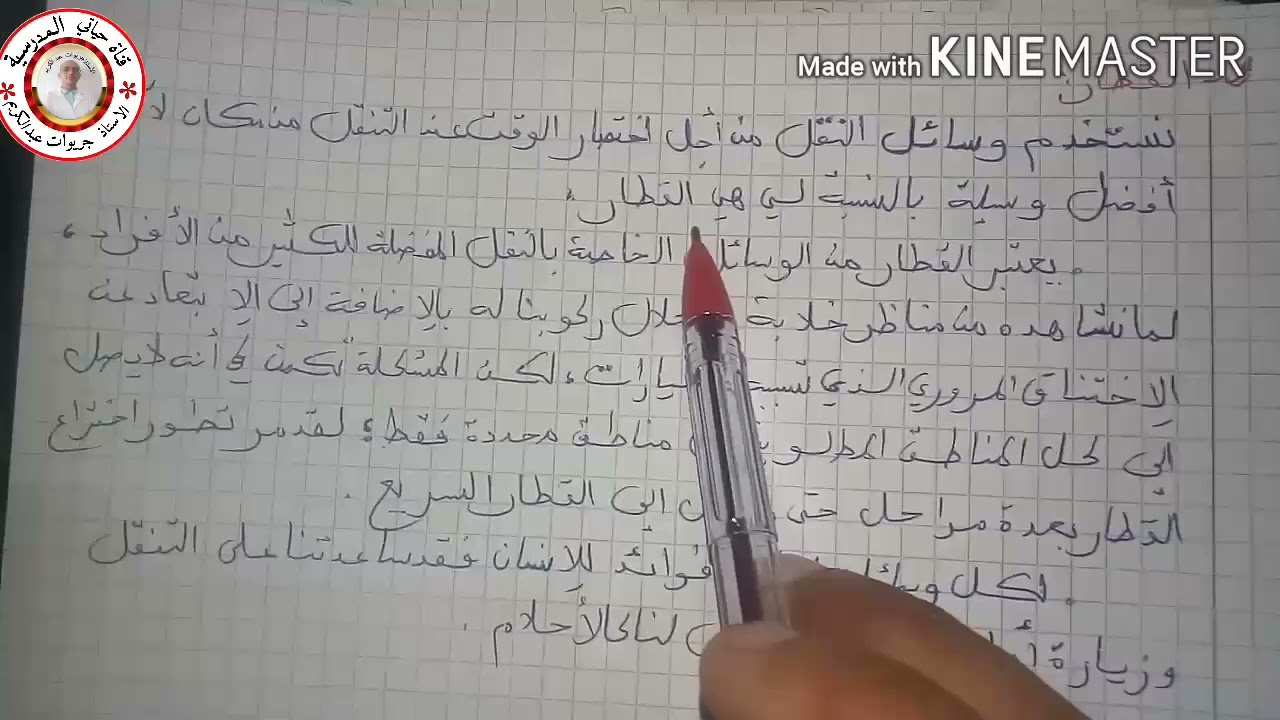 قناة حياتي المدرسية
الأستاذ جريوات عبدالكريم
Made with KINEMASTER
نستخدم وسائل النقل من أجل اختصار الوقت عند التنقل من مكان
أفضل وسيلة بالنسبة لي هي القطار.
. يعتبر القطار من الوسائل الخاصة بالنقل المفضلة للكثير من الأفراد،
لما نشاهده من مناظر خلابة خلال ركوبنا له بالإضافة إلى الإبتعاد عن
الإختناق المروري الذي تسببه السيارات، لكن المشكلة تكمن في أنه لا يصل
إلى كل المناطق المطلوبة مناطق محددة فقط؛ لقد مر تطور اختراع
القطار بعدة مراحل حتى إلى القطار السريع.
. لكل وسائل فوائد للإنسان فقد ساعدتنا على التنقل
وزيارة لنا كالأحلام.